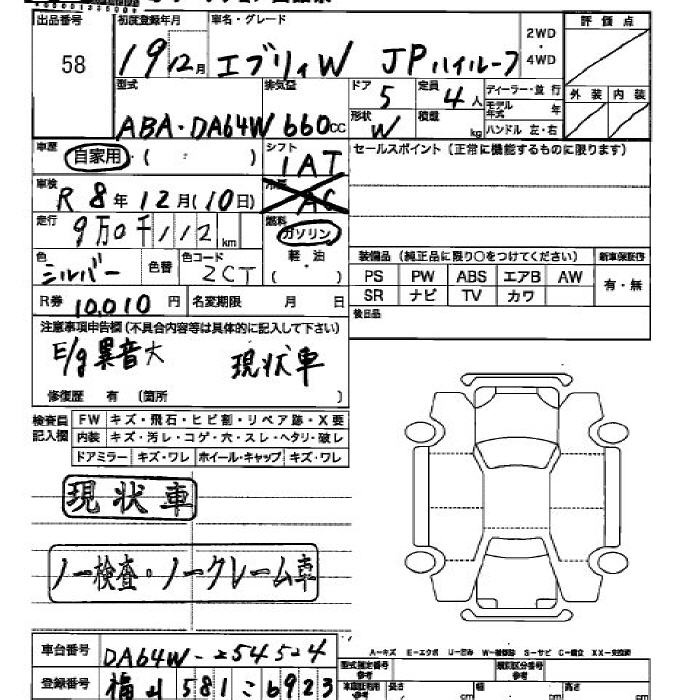 出品番号 初度登録年月 車名・グレード 2WD・4WD 評価点
58 19 12月 エブリィW JPハイルーフ
型式 排気量 ドア 5 定員 4人 ディーラー・並行 外装 内装
ABA・DA64W 660cc 形状 W 積載 kg モデル年式 年
ハンドル 左・右
車歴 自家用・( ) シフト 1AT セールスポイント(正常に機能するものに限ります)
車検 R8年12月(10日) AC
走行 9万0千112km 燃料 ガソリン
色 シルバー 色替 色コード ZCT 軽油 ( ) 装備品(純正品に限り○をつけてください) 新車保証書
PS PW ABS エアB AW 有・無
R券 10,010円 名変期限 月 日 SR ナビ TV カワ
注意事項申告欄(不具合内容等は具体的に記入して下さい) 後日品
E/g異音大 現状車
修復歴 有 (箇所 )
検査員記入欄 FW キズ・飛石・ヒビ割・リペア跡・X要
内装 キズ・汚レ・コゲ・穴・スレ・ヘタリ・破レ
ドアミラー キズ・ワレ ホイール・キャップ キズ・ワレ
現状車
ノー検査・ノークレーム車
車台番号 DA64W-254524 A-キズ E-エクボ U-凹み W-補修跡 S-サビ C-腐食 XX-交換済
型式指定番号 参考 類別区分番号 参考
登録番号 福山 581 こ 6923 車検証利用 参考 長さ cm 幅 cm 高さ cm